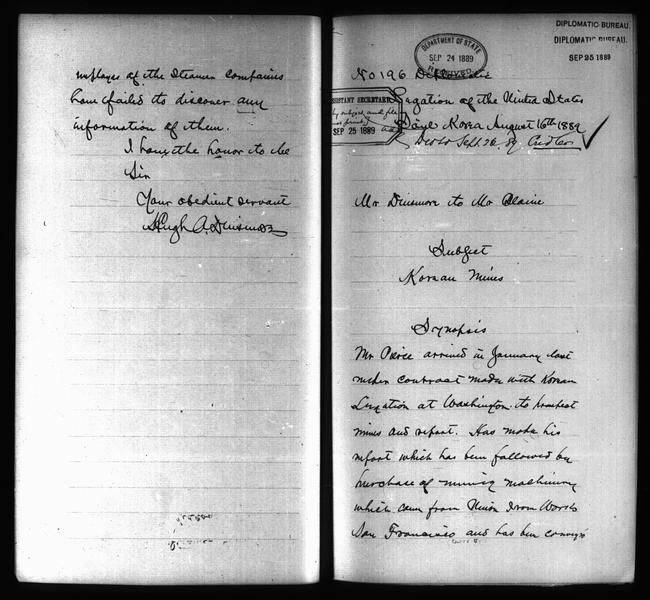 employes of the Steamer Companies
have failed to discover any
information of them.
I have the honor to be
Sir
Your obedient servant
Hugh A. Dinsmore
DIPLOMATIC BUREAU.
DIPLOMATIC BUREAU.
SEP 25 1889
DEPARTMENT OF STATE
SEP 24 1889
RECEIVED
No 196 Diplomatic
ASSISTANT SECRETARY
SEP 25 1889
Legation of the United States
Söul Korea August 16th 1889
Sept. 26, 89
Mr Dinsmore to Mr Blaine
Subject
Korean Mines
Synopsis
Mr Pierce arrived in January last
under contract made with Korean
Legation at Washington to prospect
mines and report. Has made his
report which has been followed by
purchase of mining machinery
which came from Union Iron Works
San Francisco and has been convey-